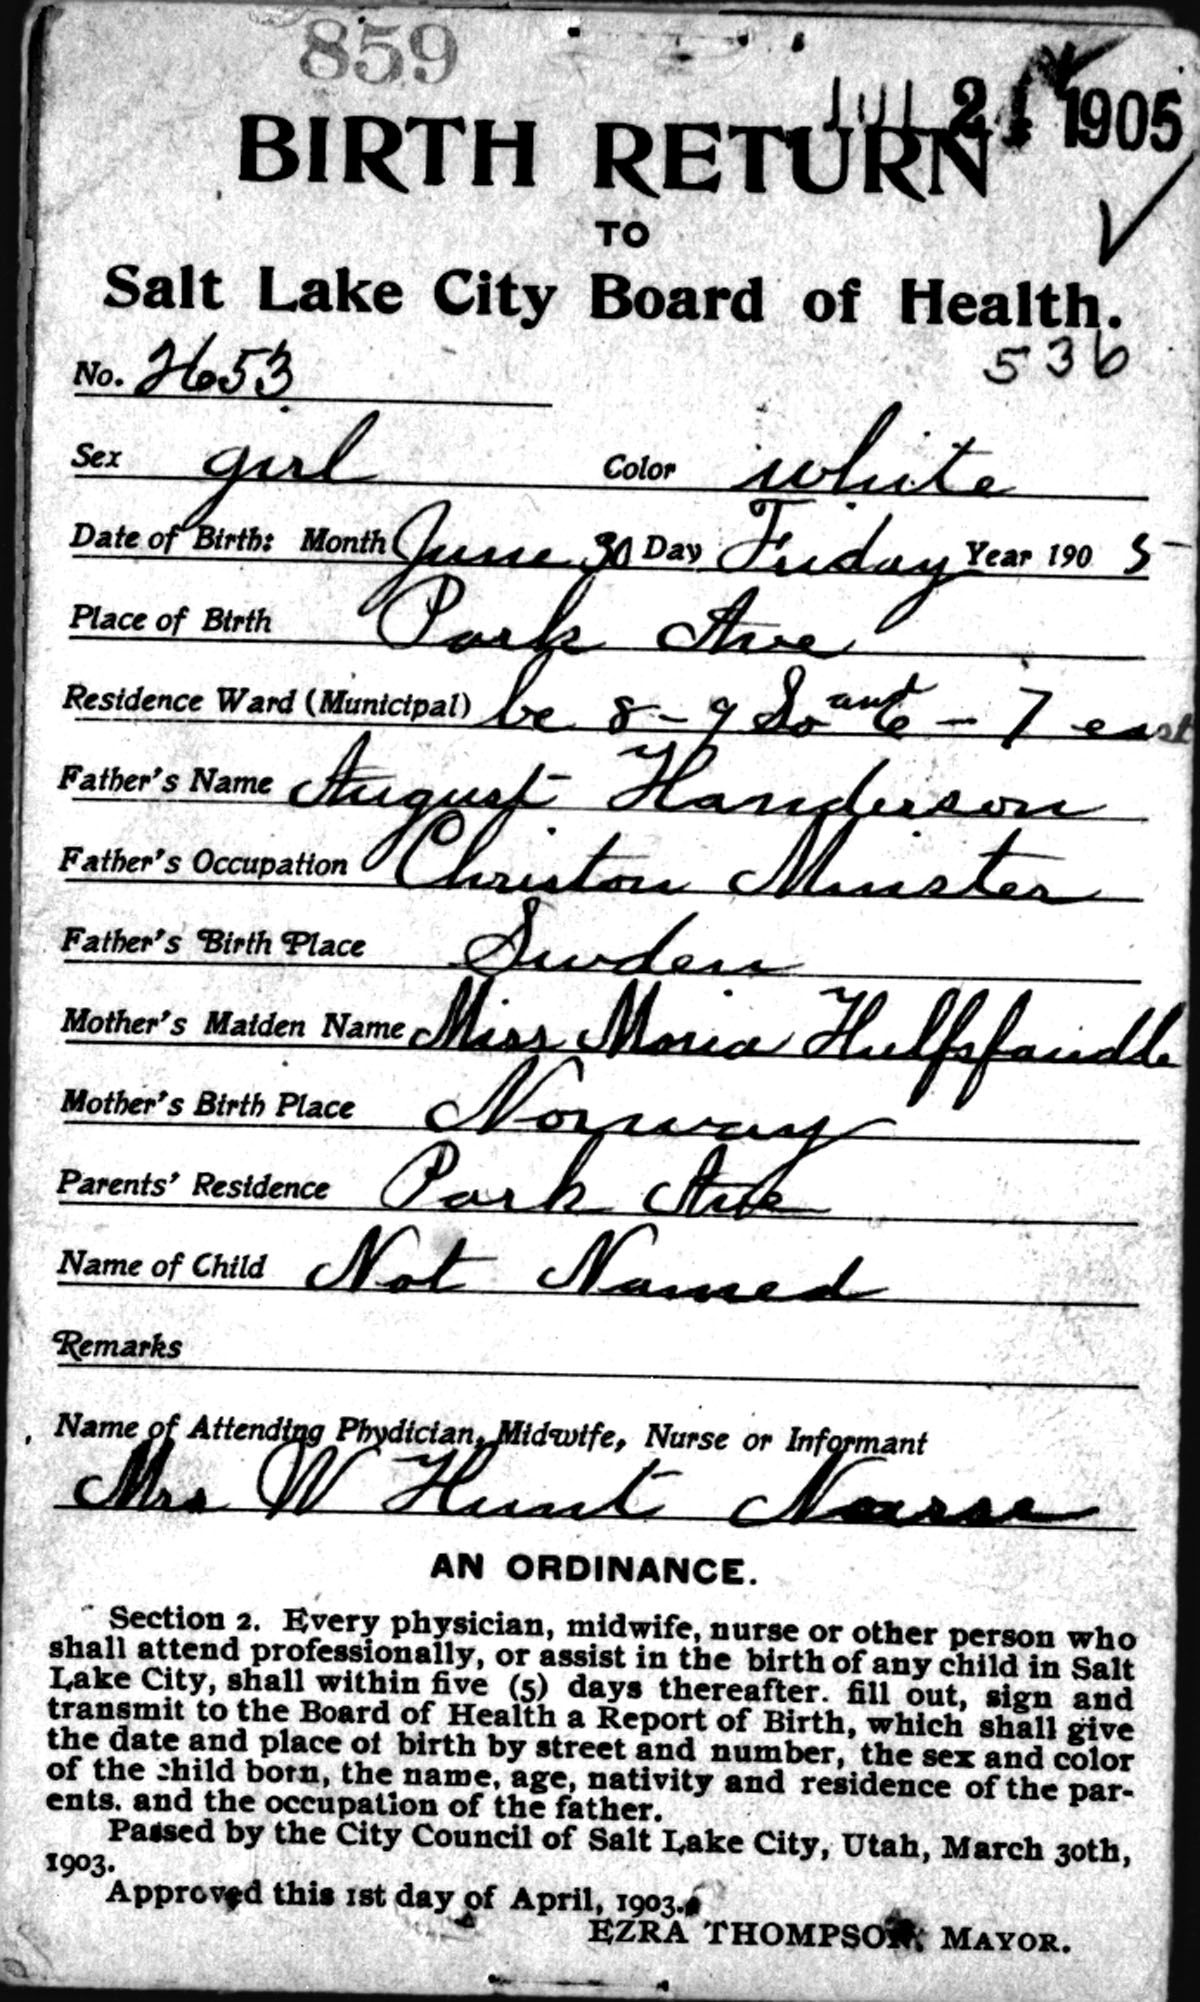 859
JUL 21 1905
BIRTH RETURN
TO
Salt Lake City Board of Health.
536
No. 2653
Sex girl Color white
Date of Birth: Month June 30 Day Friday Year 190 5
Place of Birth Park Ave
Residence Ward (Municipal) be 8-9 So and 6-7 east
Father's Name August Handerson
Father's Occupation Christon Minister
Father's Birth Place Sweden
Mother's Maiden Name Miss Maria
Mother's Birth Place Norway
Parents' Residence Park Ave
Name of Child Not Named
Remarks
Name of Attending Phydician, Midwife, Nurse or Informant
Mrs W Hunt Nurse
AN ORDINANCE.
Section 2. Every physician, midwife, nurse or other person who
shall attend professionally, or assist in the birth of any child in Salt
Lake City, shall within five (5) days thereafter. fill out, sign and
transmit to the Board of Health a Report of Birth, which shall give
the date and place of birth by street and number, the sex and color
of the child born, the name, age, nativity and residence of the par-
ents. and the occupation of the father.
Passed by the City Council of Salt Lake City, Utah, March 30th,
1903.
Approved this 1st day of April, 1903.
EZRA THOMPSON, MAYOR.